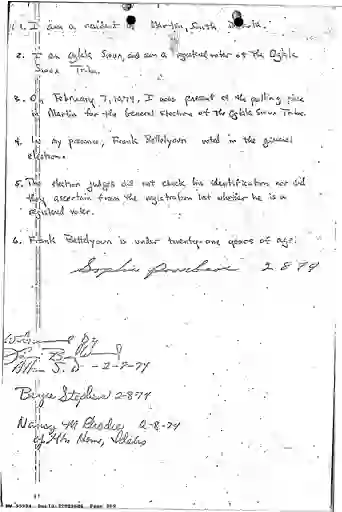 1. I am a resident of Martin, South Dakota.
2. I am Oglala Sioux, and am a registered voter of the Oglala
Sioux Tribe.
3. On February 7, 1974, I was present at the polling place
in Martin for the General Election of the Oglala Sioux Tribe.
4. In my presence, Frank Bettelyoun voted in the general
election.
5. The election judges did not check his identification nor did
they ascertain from the registration list whether he is a
registered voter.
6. Frank Bettelyoun is under twenty-one years of age.
Sophie 2 8 74
By
S. D. -2-8-74
Bryce Stephens 2-8-74
Nancy M 2-8-74
Home, Idaho